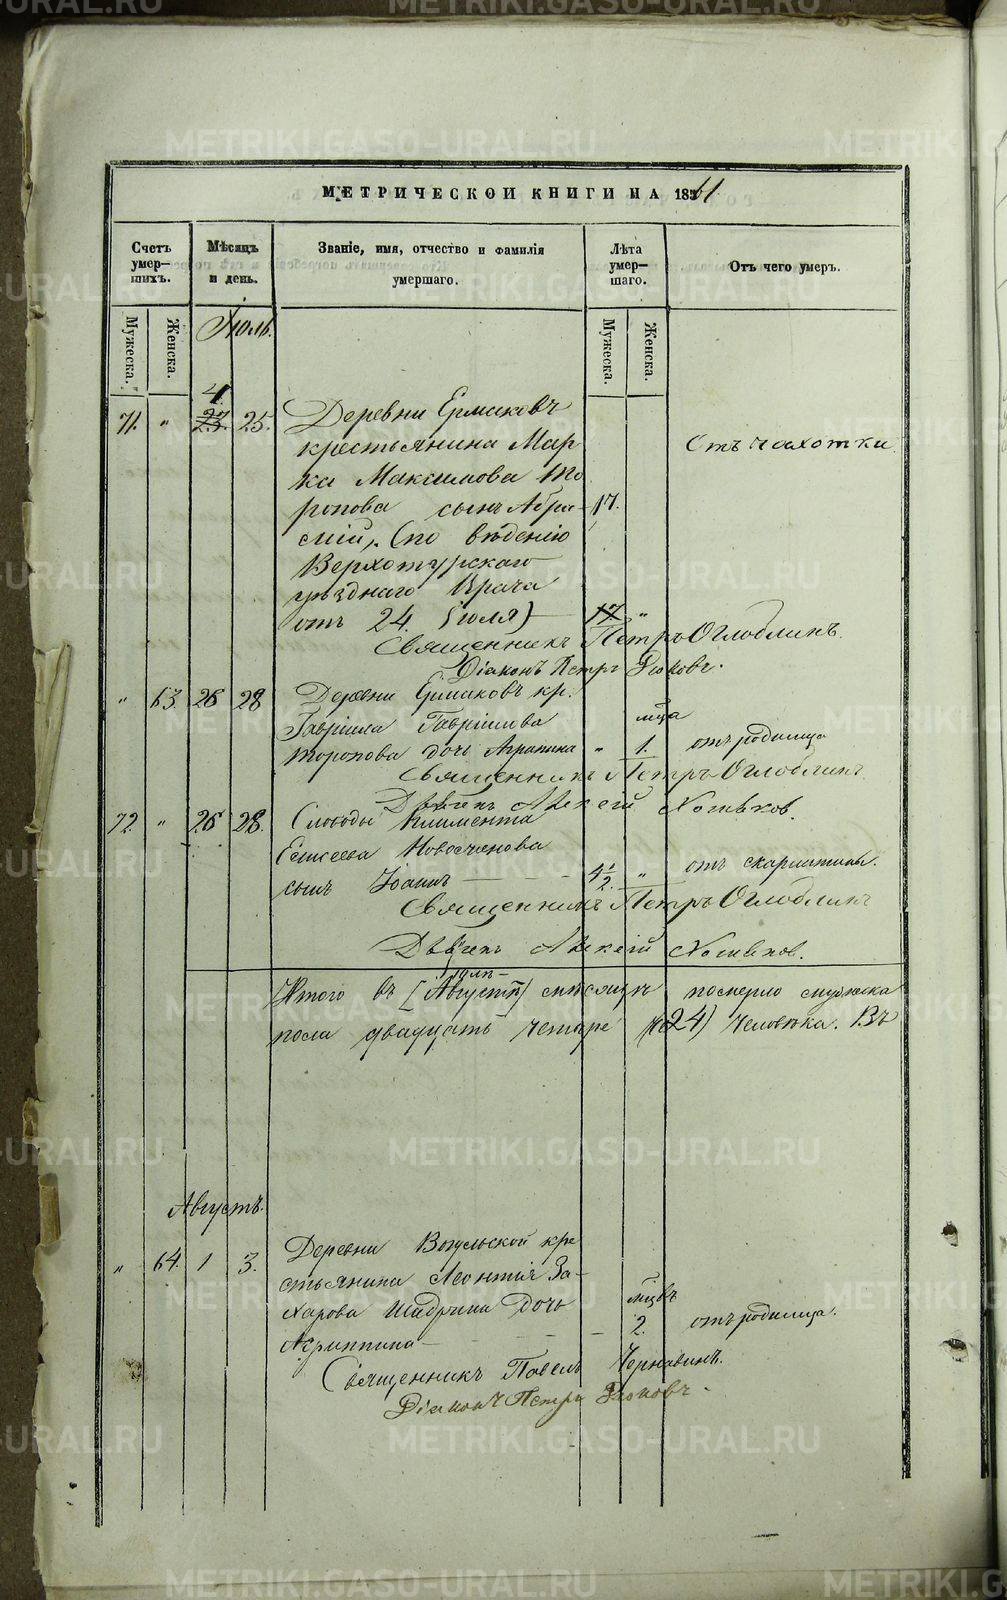 МЕТРИЧЕСКОЙ КНИГИ НА 1861
Счетъ умер-шихъ.
Мѣсяцъ и день.
Званіе, имя, отчество и фамилія умершаго.
Лѣта умер-шаго.
Отъ чего умеръ.
Мужеска.
Женска.
Мужеска.
Женска.
Іюль.
4
71. " 27. 25. Деревни Ермаковъ
крестьянина Мар- Отъ чахотки
ка Максимова То
ропова сынъ 17.
(по вѣденію
Верхотурскаго
уѣзднаго Врача
отъ 24 Іюля) 17 "
Священникъ Петръ Оглоблинъ.
Діаконъ Петръ
" 63. 26 28 Деревни Ермаковъ кр.
Гавріила Гавріилова мца
Торопова дочь Агрипина " 1. отъ родимца
Священникъ Петръ Оглоблинъ.
Алексѣй Хотьков.
72. " 26 28. Слободы Климента
Елисеева
сынъ Іоаннъ 4 1/2. " отъ скарлатины.
Священникъ Петръ Оглоблинъ
Алексѣй Хотьков.
Іюлѣ
Итого въ [Августѣ] мѣсяцѣ померло мужеска
пола двадцать четыре (24) человѣка. Въ
Августъ.
" 64. 1 3. Деревни Вогульской кре
стьянина Леонтія За-
харова Шадрина дочь мцовъ
Агриппина 2. отъ родимца.
Священникъ Павелъ Чернавинъ.
Діаконъ Петръ
METRIKI.GASO-URAL.RU